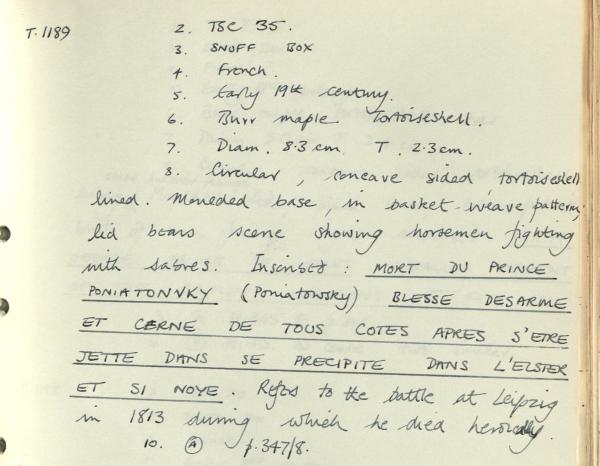 T.1189
2. TSC 35.
3. SNUFF BOX
4. French.
5. Early 19th century.
6. Burr maple Tortoiseshell.
7. Diam. 8.3cm T. 2.3cm.
8. Circular, concave sided, tortoiseshell
lined. Moulded base, in basket-weave pattern,
lid bears scene showing horsemen fighting
with sabres. Inscribed: MORT DU PRINCE
PONIATONVKY (Poniatowsky) BLESSE DESARME
ET CERNE DE TOUS COTES APRES S'ETRE
JETTE DANS SE PRECIPITE DANS L'ELSTER
ET SI NOYE. Refers to the battle at Leipzig
in 1813 during which he died heroically.
10. A p.347/8.